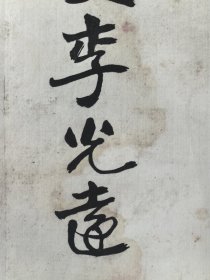 李光遠